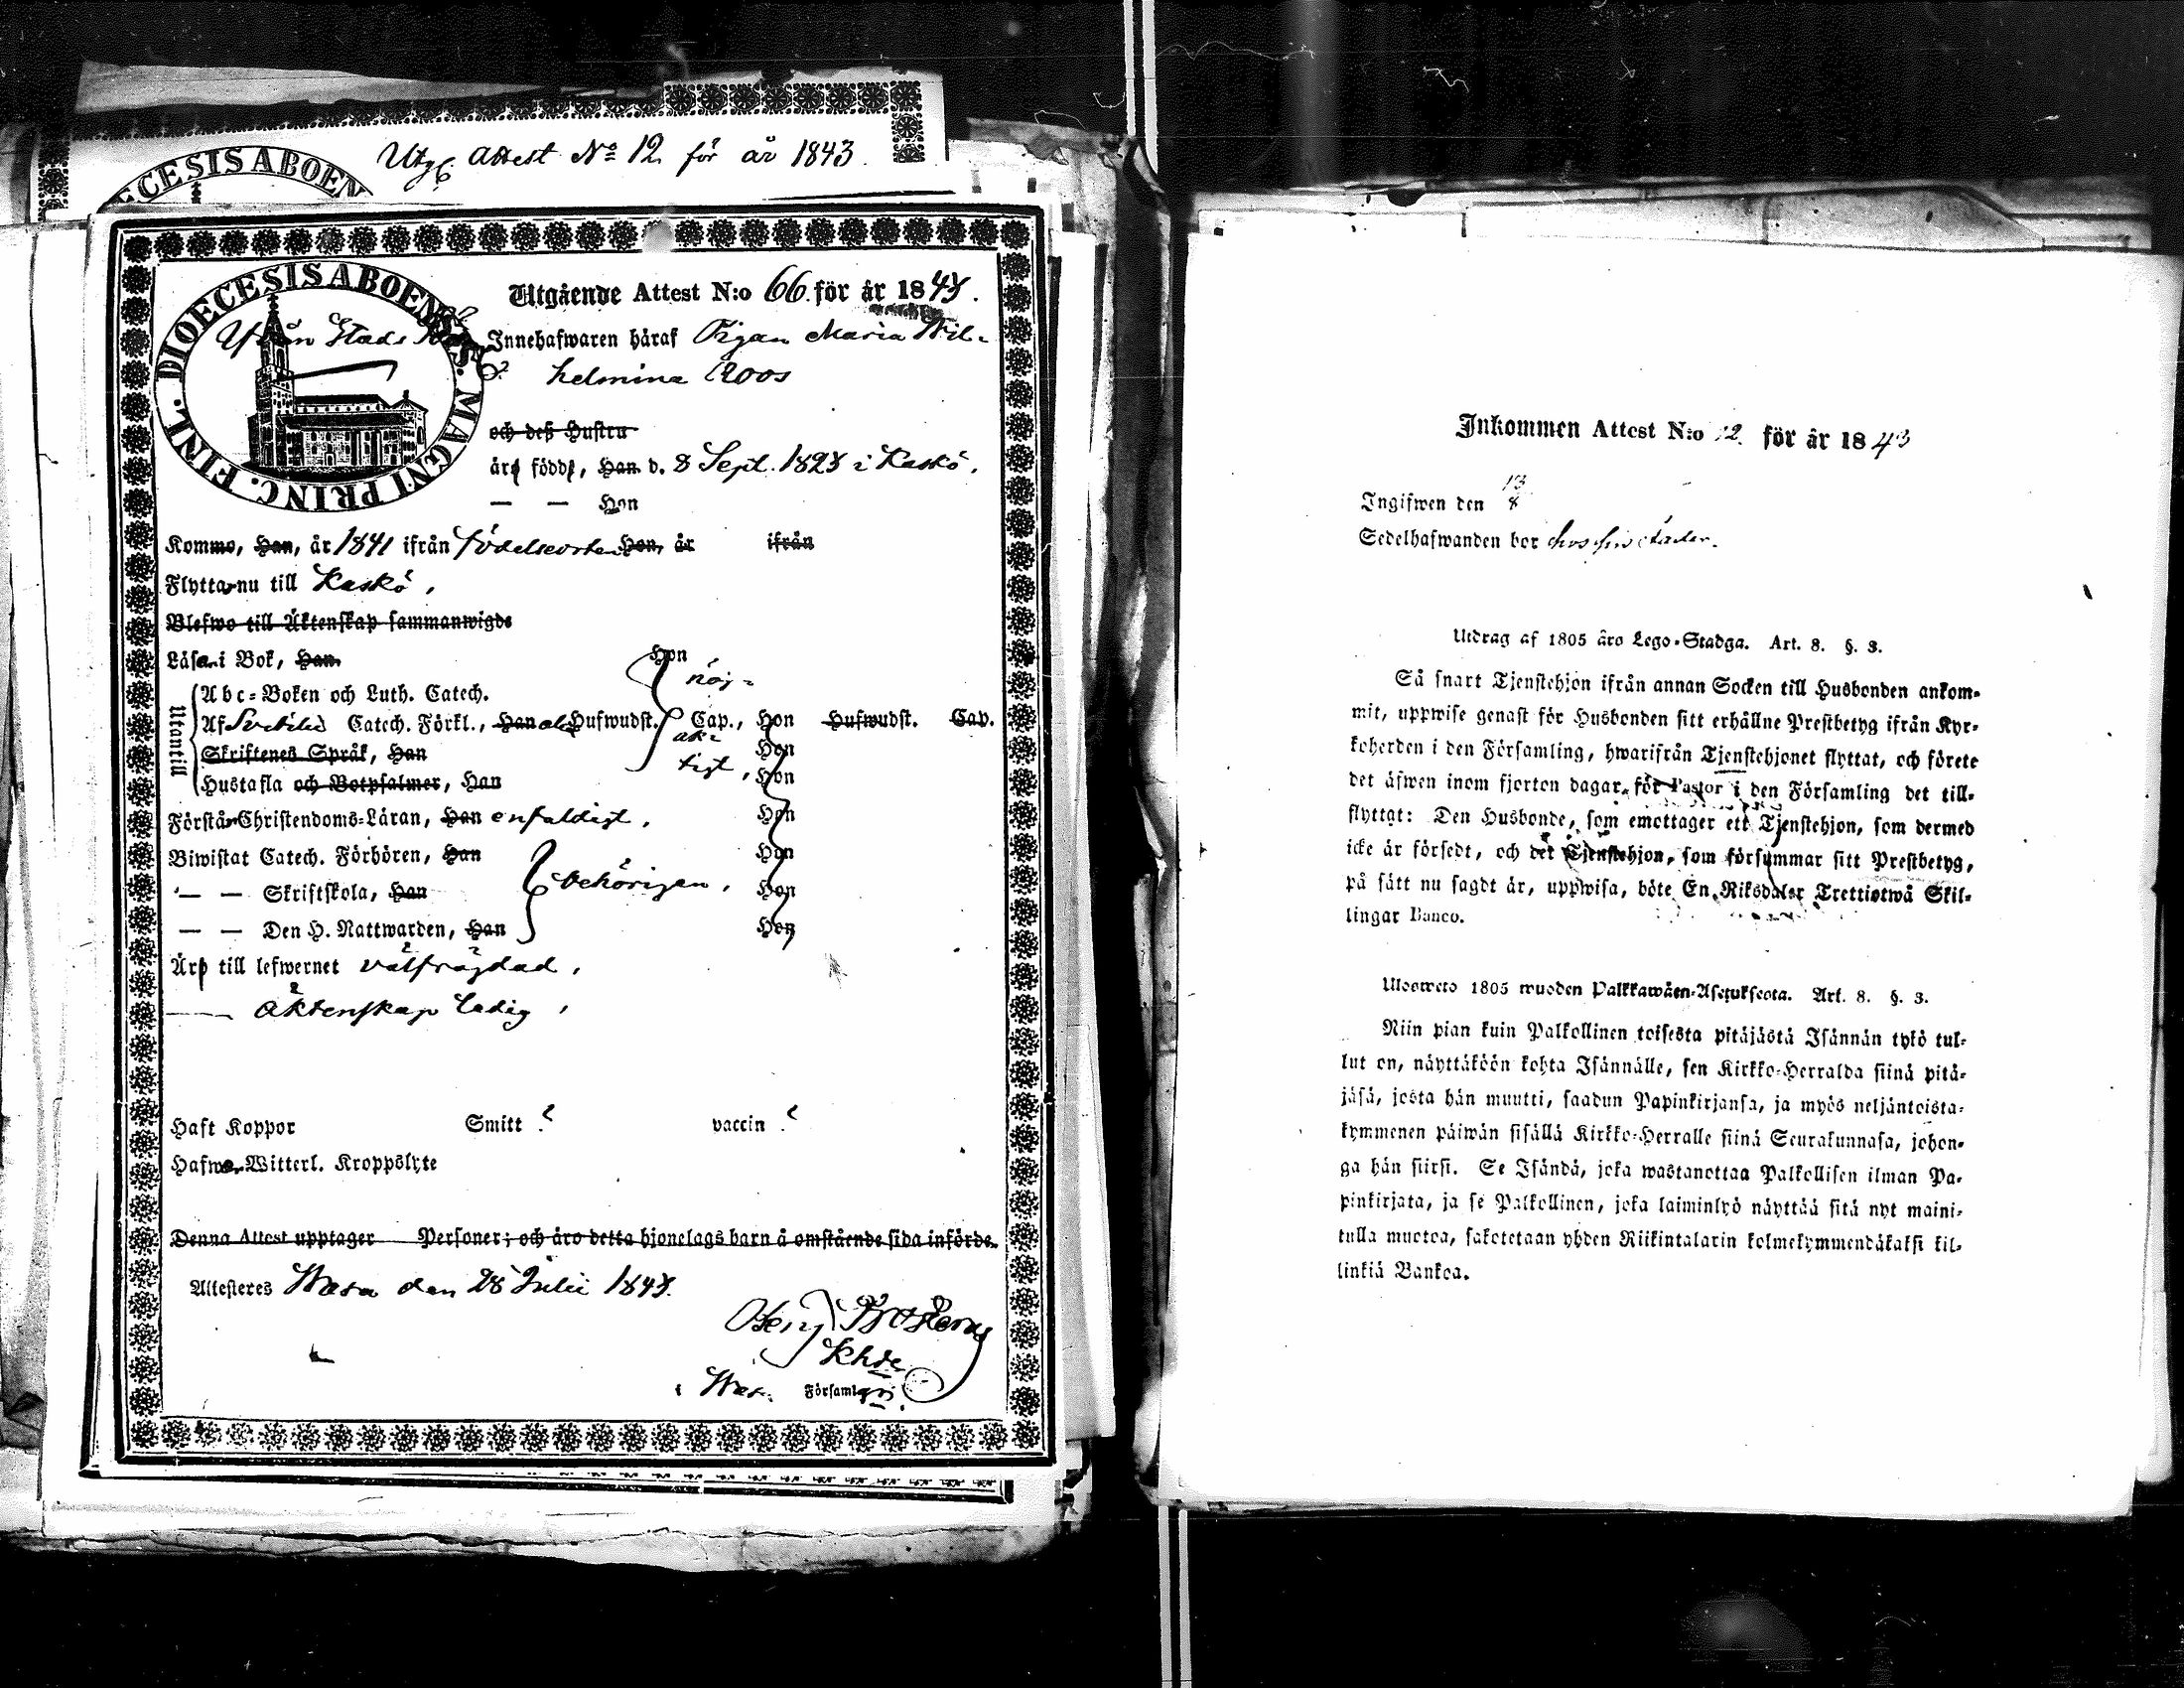 Utg. Attest No 12 för år 1843.
DIOECESIS ABOEN
DIOECESIS ABOENSIS. MAGNI PRINC. FINL.
Utgående Attest N:o 66. för år 1843.
Ifrån Stads
Innehafwaren häraf Pigan Maria Wil-
helmina Roos
och deß Hustru
äro födde, Han d. 8 Sept. 1823 i Kaskö.
— — Hon
Kommo, Han, år 1841 ifrån födelseorten Hon, år ifrån
Flytta nu till Kaskö,
Blefwo till Äktenskap sammanwigde
Läsa i Bok, Han Hon
nöj-
Utantill
Abc-Boken och Luth. Catech.
Af Svebilii Catech. Förkl., Han Hufwudst. Cap., Hon Hufwudst. Cap.
ak-
Skriftenes Språk, Han Hon
tigt,
Hustafla och Botpsalmer, Han Hon
Förstår Christendoms-Läran, Han enfaldigt, Hon
Biwistat Catech. Förhören, Han Hon
— — Skriftskola, Han behörigen, Hon
— — Den H. Nattwarden, Han Hon
Äro till lefwernet välfrägdad,
— äktenskap ledig,
Haft Koppor Smitt ? vaccin ?
Hafwa Witterl. Kroppslyte
Denna Attest upptager Personer; och äro detta hjonelags barn å omstående sida införde.
Attesteres Wasa den 28 Julii 1843.
Benj
Khde
i Wasa Församlgn.
Inkommen Attest N:o 12. för år 1843
Ingifwen den 13/8
Sedelhafwanden bor hos sin fader.
Utdrag af 1805 års Lego-Stadga. Art. 8. §. 3.
Så snart Tjenstehjon ifrån annan Socken till Husbonden ankom-
mit, uppwise genast för Husbonden sitt erhållne Prestbetyg ifrån Kyr-
koherden i den Församling, hwarifrån Tjenstehjonet flyttat, och förete
det äfwen inom fjorton dagar, för Pastor i den Församling det till-
flyttat: Den Husbonde, som emottager ett Tjenstehjon, som dermed
icke är försedt, och det Tjenstehjon, som försummar sitt Prestbetyg,
på sätt nu sagdt är, uppwisa, böte En Riksdaler Trettiotwå Skil-
lingar Banco.
Ulosweto 1805 wuoden Palkkawäen-Asetuksesta. Art. 8. §. 3.
Niin pian kuin Palkollinen toisesta pitäjästä Isännän tykö tul-
lut on, näyttäköön kohta Isännälle, sen Kirkko-Herralda siinä pitä-
jäsä, josta hän muutti, saadun Papinkirjansa, ja myös neljäntoista-
kymmenen päiwän sisällä Kirkko-Herralle siinä Seurakunnasa, johon-
ga hän siirsi. Se Isändä, joka wastanottaa Palkollisen ilman Pa-
pinkirjata, ja se Palkollinen, joka laiminlyö näyttää sitä nyt maini-
tulla muotoa, sakotetaan yhden Riikintalarin kolmekymmendäkaksi kil-
linkiä Bankoa.